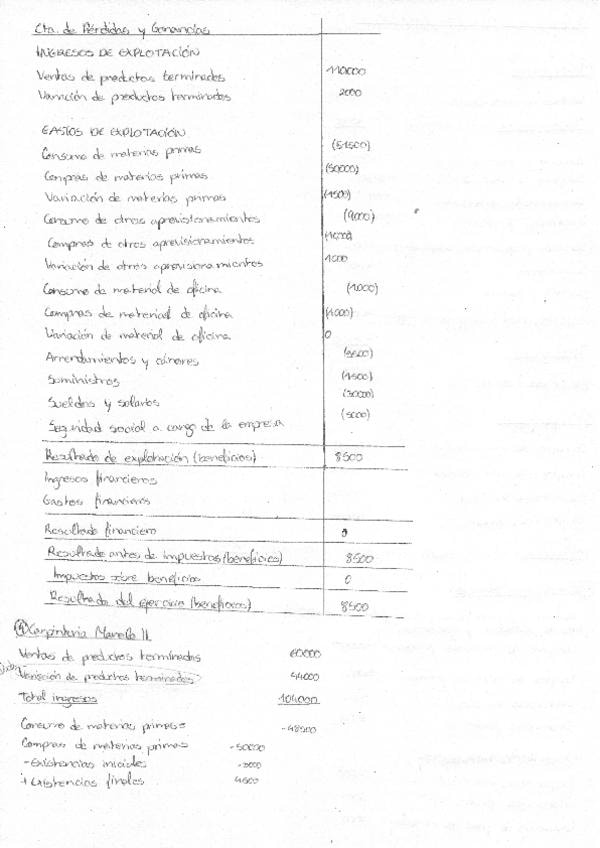 Cta. de Pérdidas y Ganancias
INGRESOS DE EXPLOTACIÓN
Ventas de productos terminados 110000
Variación de productos terminados 2000
GASTOS DE EXPLOTACIÓN
Consumo de materias primas (51500)
Compras de materias primas (50000)
Variación de materias primas (1500)
Consumo de otros aprovisionamientos (9000)
Compras de otros aprovisionamientos
Variación de otros aprovisionamientos 1000
Consumo de material de oficina (1000)
Compras de material de oficina (1000)
Variación de material de oficina 0
Arrendamientos y cánones
Suministros (1500)
Sueldos y salarios (30000)
Seguridad social a cargo de la empresa (5000)
Resultado de explotación (beneficios) 8500
Ingresos financieros
Gastos financieros
Resultado financiero 0
Resultado antes de impuestos (beneficios) 8500
Impuestos sobre beneficios 0
Resultado del ejercicio (beneficios) 8500
Carpintería II
Ventas de productos terminados 60000
Variación de productos terminados 44000
Total ingresos 104000
Consumo de materias primas = -48500
Compras de materias primas -50000
- Existencias iniciales -3000
+ Existencias finales 4500